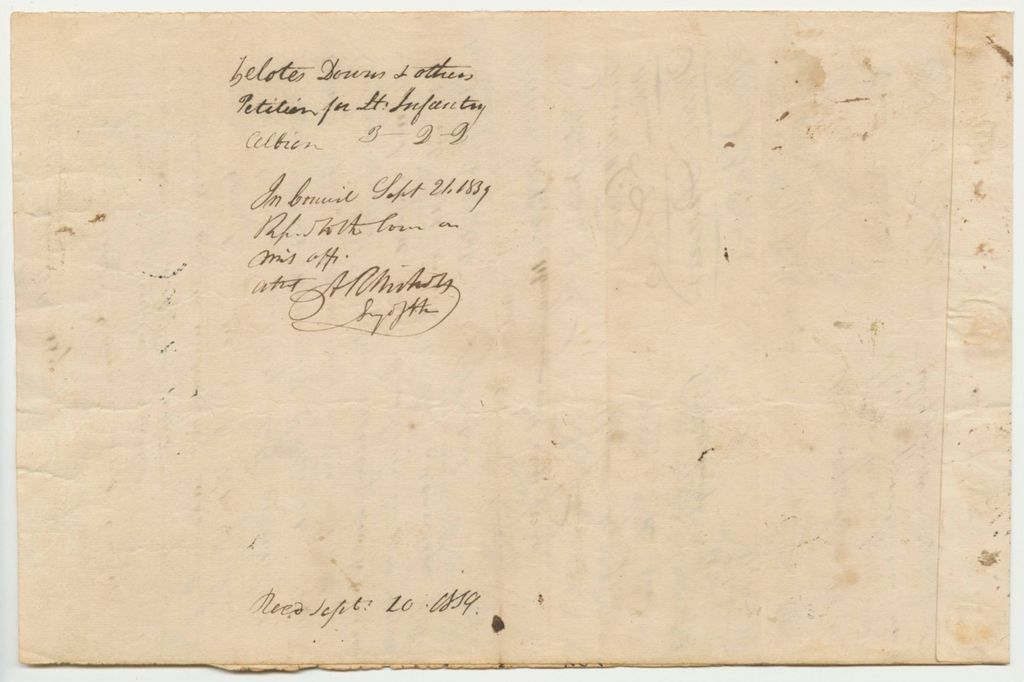 Zelotes Downs & others
Petition for Lt. Infantry
Albion 3 - 2 - 2
In Council Sept 21. 1839
Refd to the Com on
Mis affs.
attest A R Nichols
Secy of State
Recd Sept: 20 1839.